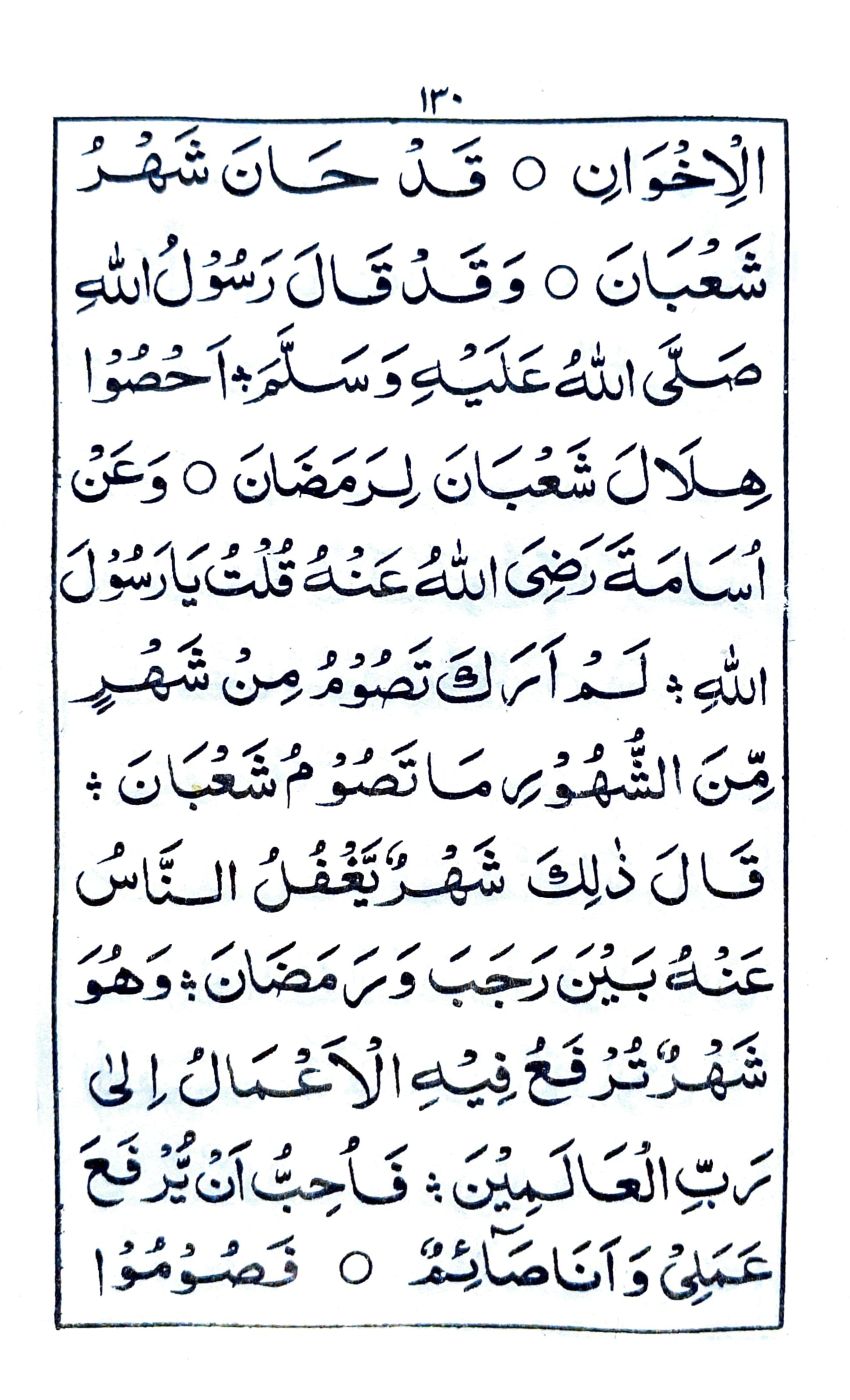 ١٣٠
الْاِخْوَانِ ○ قَدْ حَانَ شَهْرُ
شَعْبَانَ ○ وَقَدْ قَالَ رَسُوْلُ اللهِ
صَلَّى اللهُ عَلَيْهِ وَسَلَّمَ ؞ اَحْصُوْا
هِلَالَ شَعْبَانَ لِرَمَضَانَ ○ وَعَنْ
اُسَامَةَ رَضِىَ اللهُ عَنْهُ قُلْتُ يَارَسُوْلَ
اللهِ ؞ لَمْ اَرَكَ تَصُوْمُ مِنْ شَهْرٍ
مِّنَ الشُّهُوْرِ مَا تَصُوْمُ شَعْبَانَ ؞
قَالَ ذٰلِكَ شَهْرٌ يَّغْفُلُ النَّاسُ
عَنْهُ بَيْنَ رَجَبَ وَرَمَضَانَ ؞ وَهُوَ
شَهْرٌ تُرْفَعُ فِيْهِ الْاَعْمَالُ اِلىٰ
رَبِّ الْعَالَمِيْنَ ؞ فَاُحِبُّ اَنْ يُّرْفَعَ
عَمَلِىْ وَاَنَا صَآئِمٌ ○ فَصُوْمُوْا